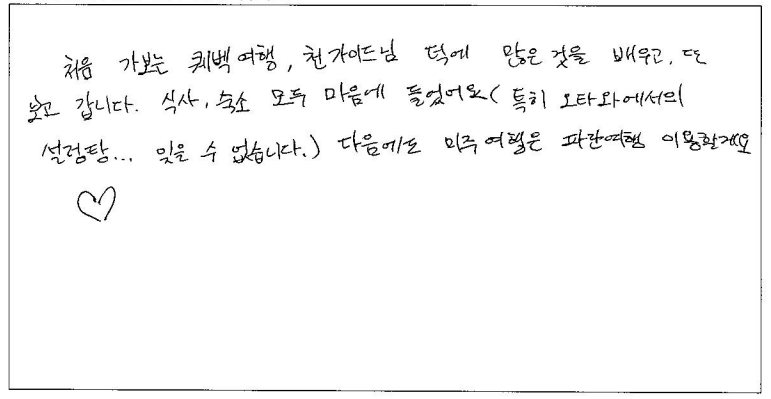 처음 가보는 퀘벡여행, 천가이드님 덕에 많은 것을 배우고, 또
보고 갑니다. 식사, 숙소 모두 마음에 들었어요( 특히 오타와에서의
설렁탕... 잊을 수 없습니다.) 다음에도 미주여행은 파란여행 이용할게요
♡